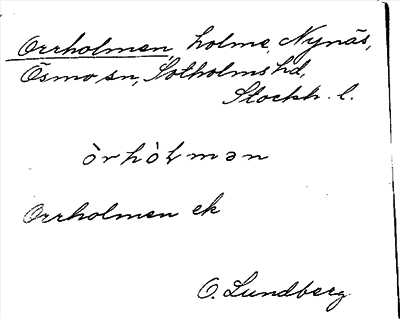 Orrholmen, holme, Nynäs,
Ösmo sn, Sotholms hd,
Stockh. l.
òrhòlmən
Orrholmen ek
O. Lundberg